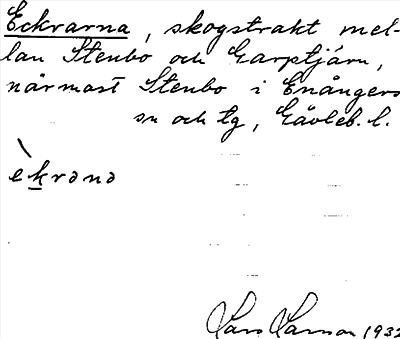 Eckrarna, skogstrakt mel-
lan Stenbo och Garptjärn,
närmast Stenbo i Enångers
sn och tg, Gävleb. l.
èkrənə
Lars Larson 1932